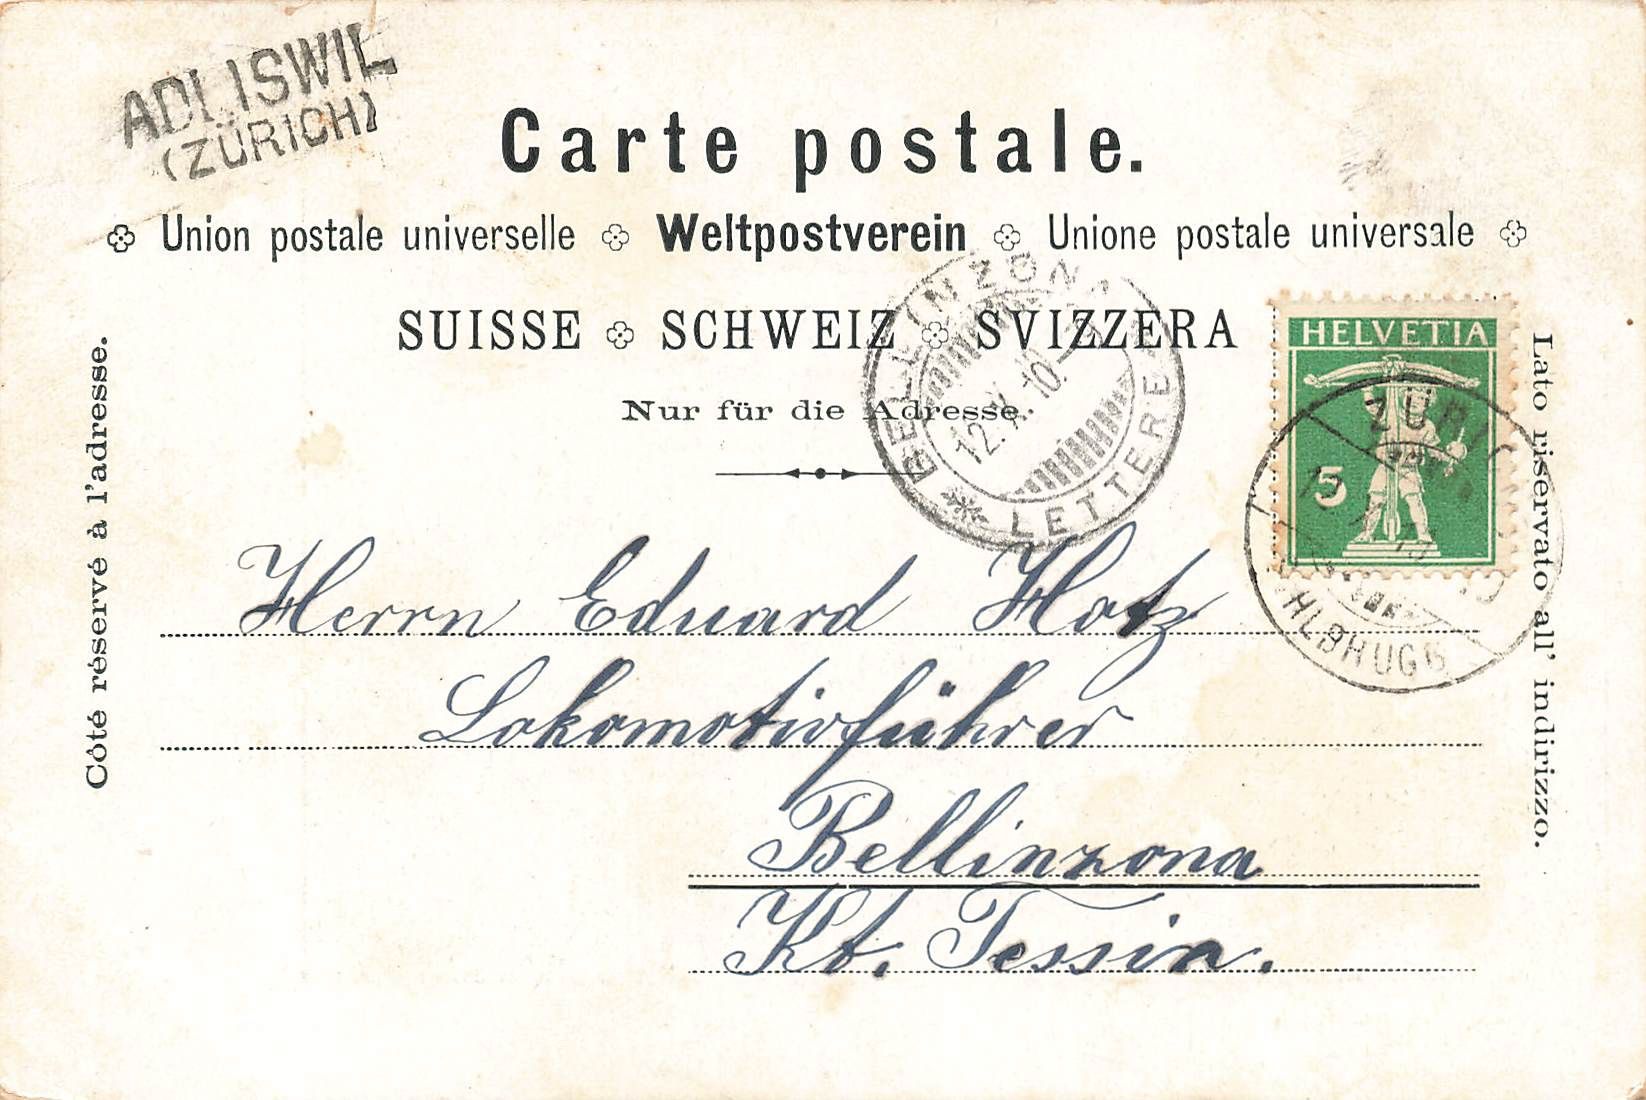 ADLISWIL
(ZÜRICH)
Carte postale.
Union postale universelle Weltpostverein Unione postale universale
SUISSE SCHWEIZ SVIZZERA
Nur für die Adresse.
Côté réservé à l'adresse.
Lato riservato all' indirizzo.
BELLINZONA
LETTERE
HELVETIA
5
ZÜRICH
Herrn Eduard Hotz
Lokomotivführer
Bellinzona
Kt. Tessin.